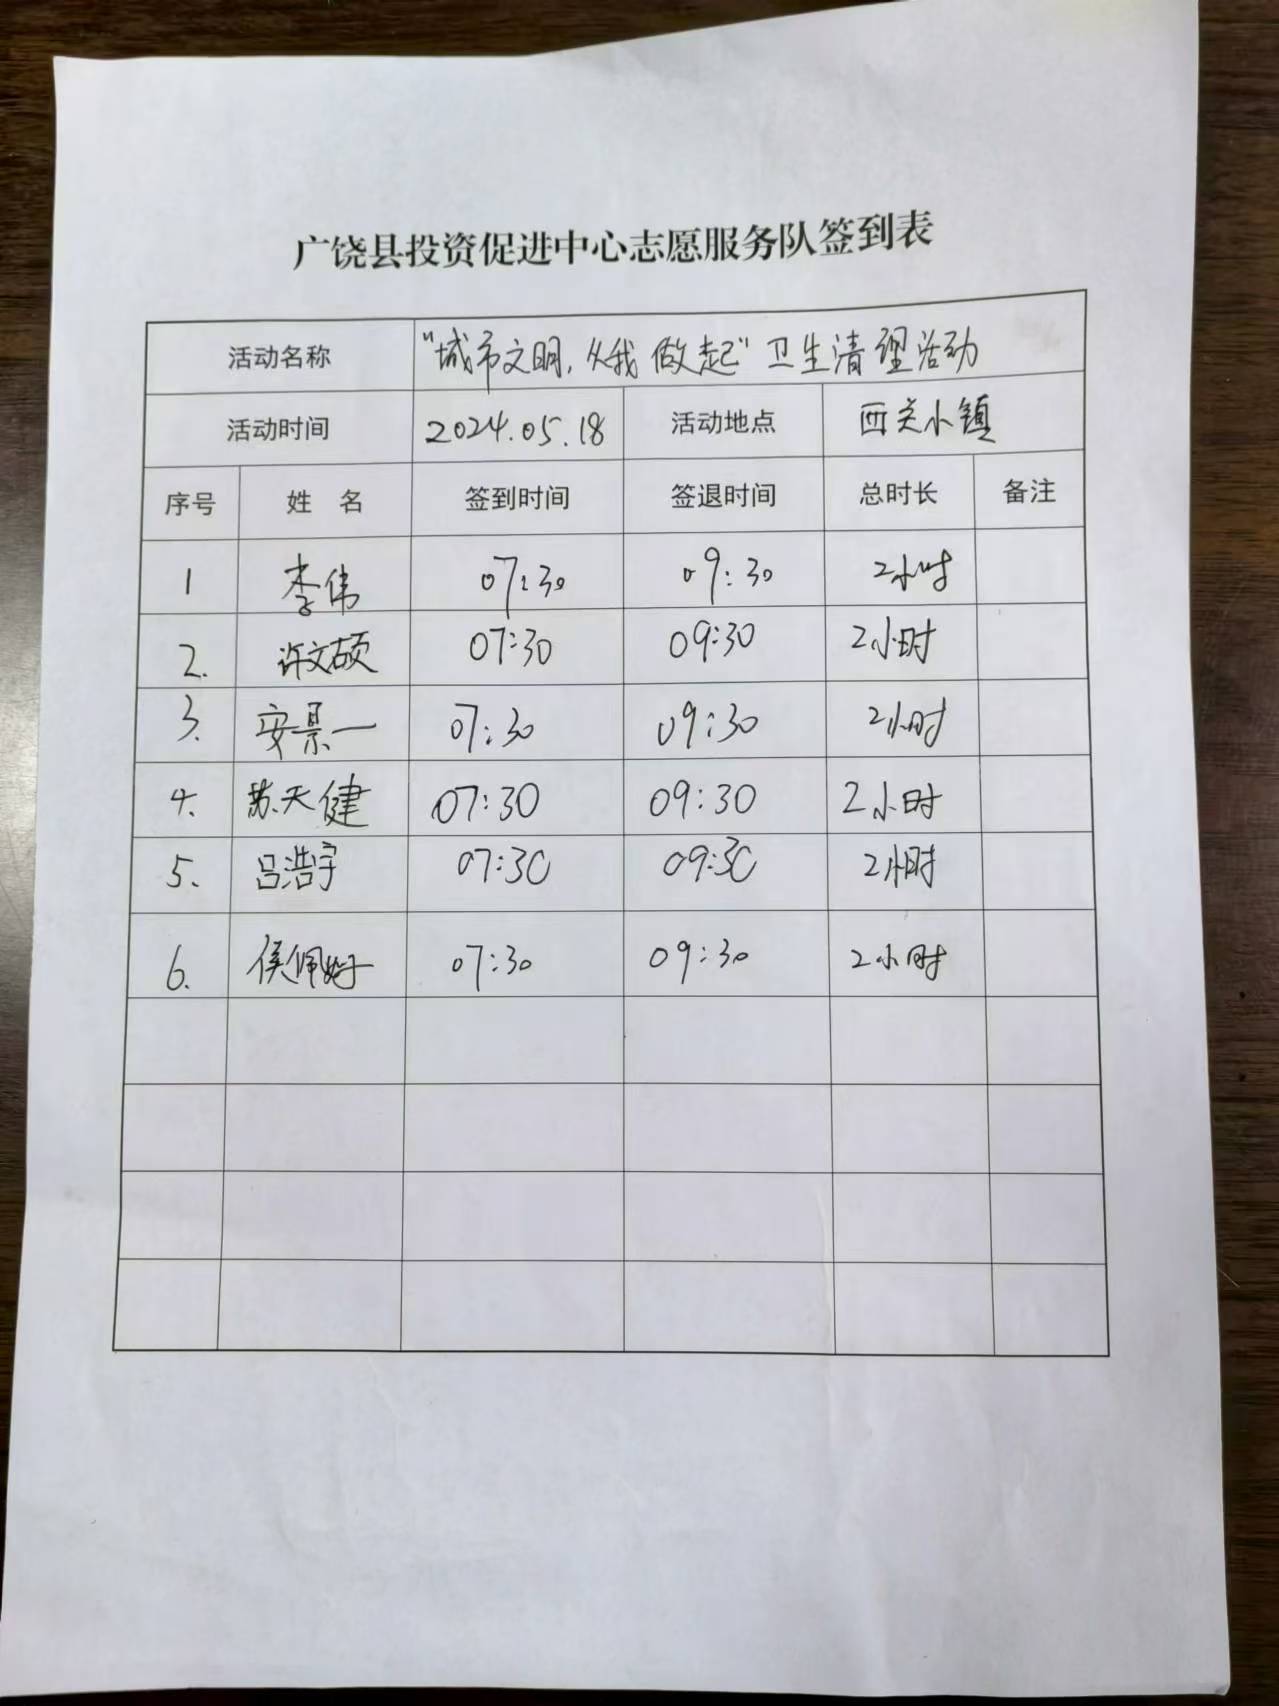 广饶县投资促进中心志愿服务队签到表
活动名称 “城市文明,从我做起”卫生清理活动
活动时间 2024.05.18 活动地点 西关小镇
序号 姓 名 签到时间 签退时间 总时长 备注
1 李伟 07:30 09:30 2小时
2. 许文硕 07:30 09:30 2小时
3. 安景一 07:30 09:30 2小时
4. 苏天健 07:30 09:30 2小时
5. 吕浩宇 07:30 09:30 2小时
6. 侯佩 07:30 09:30 2小时